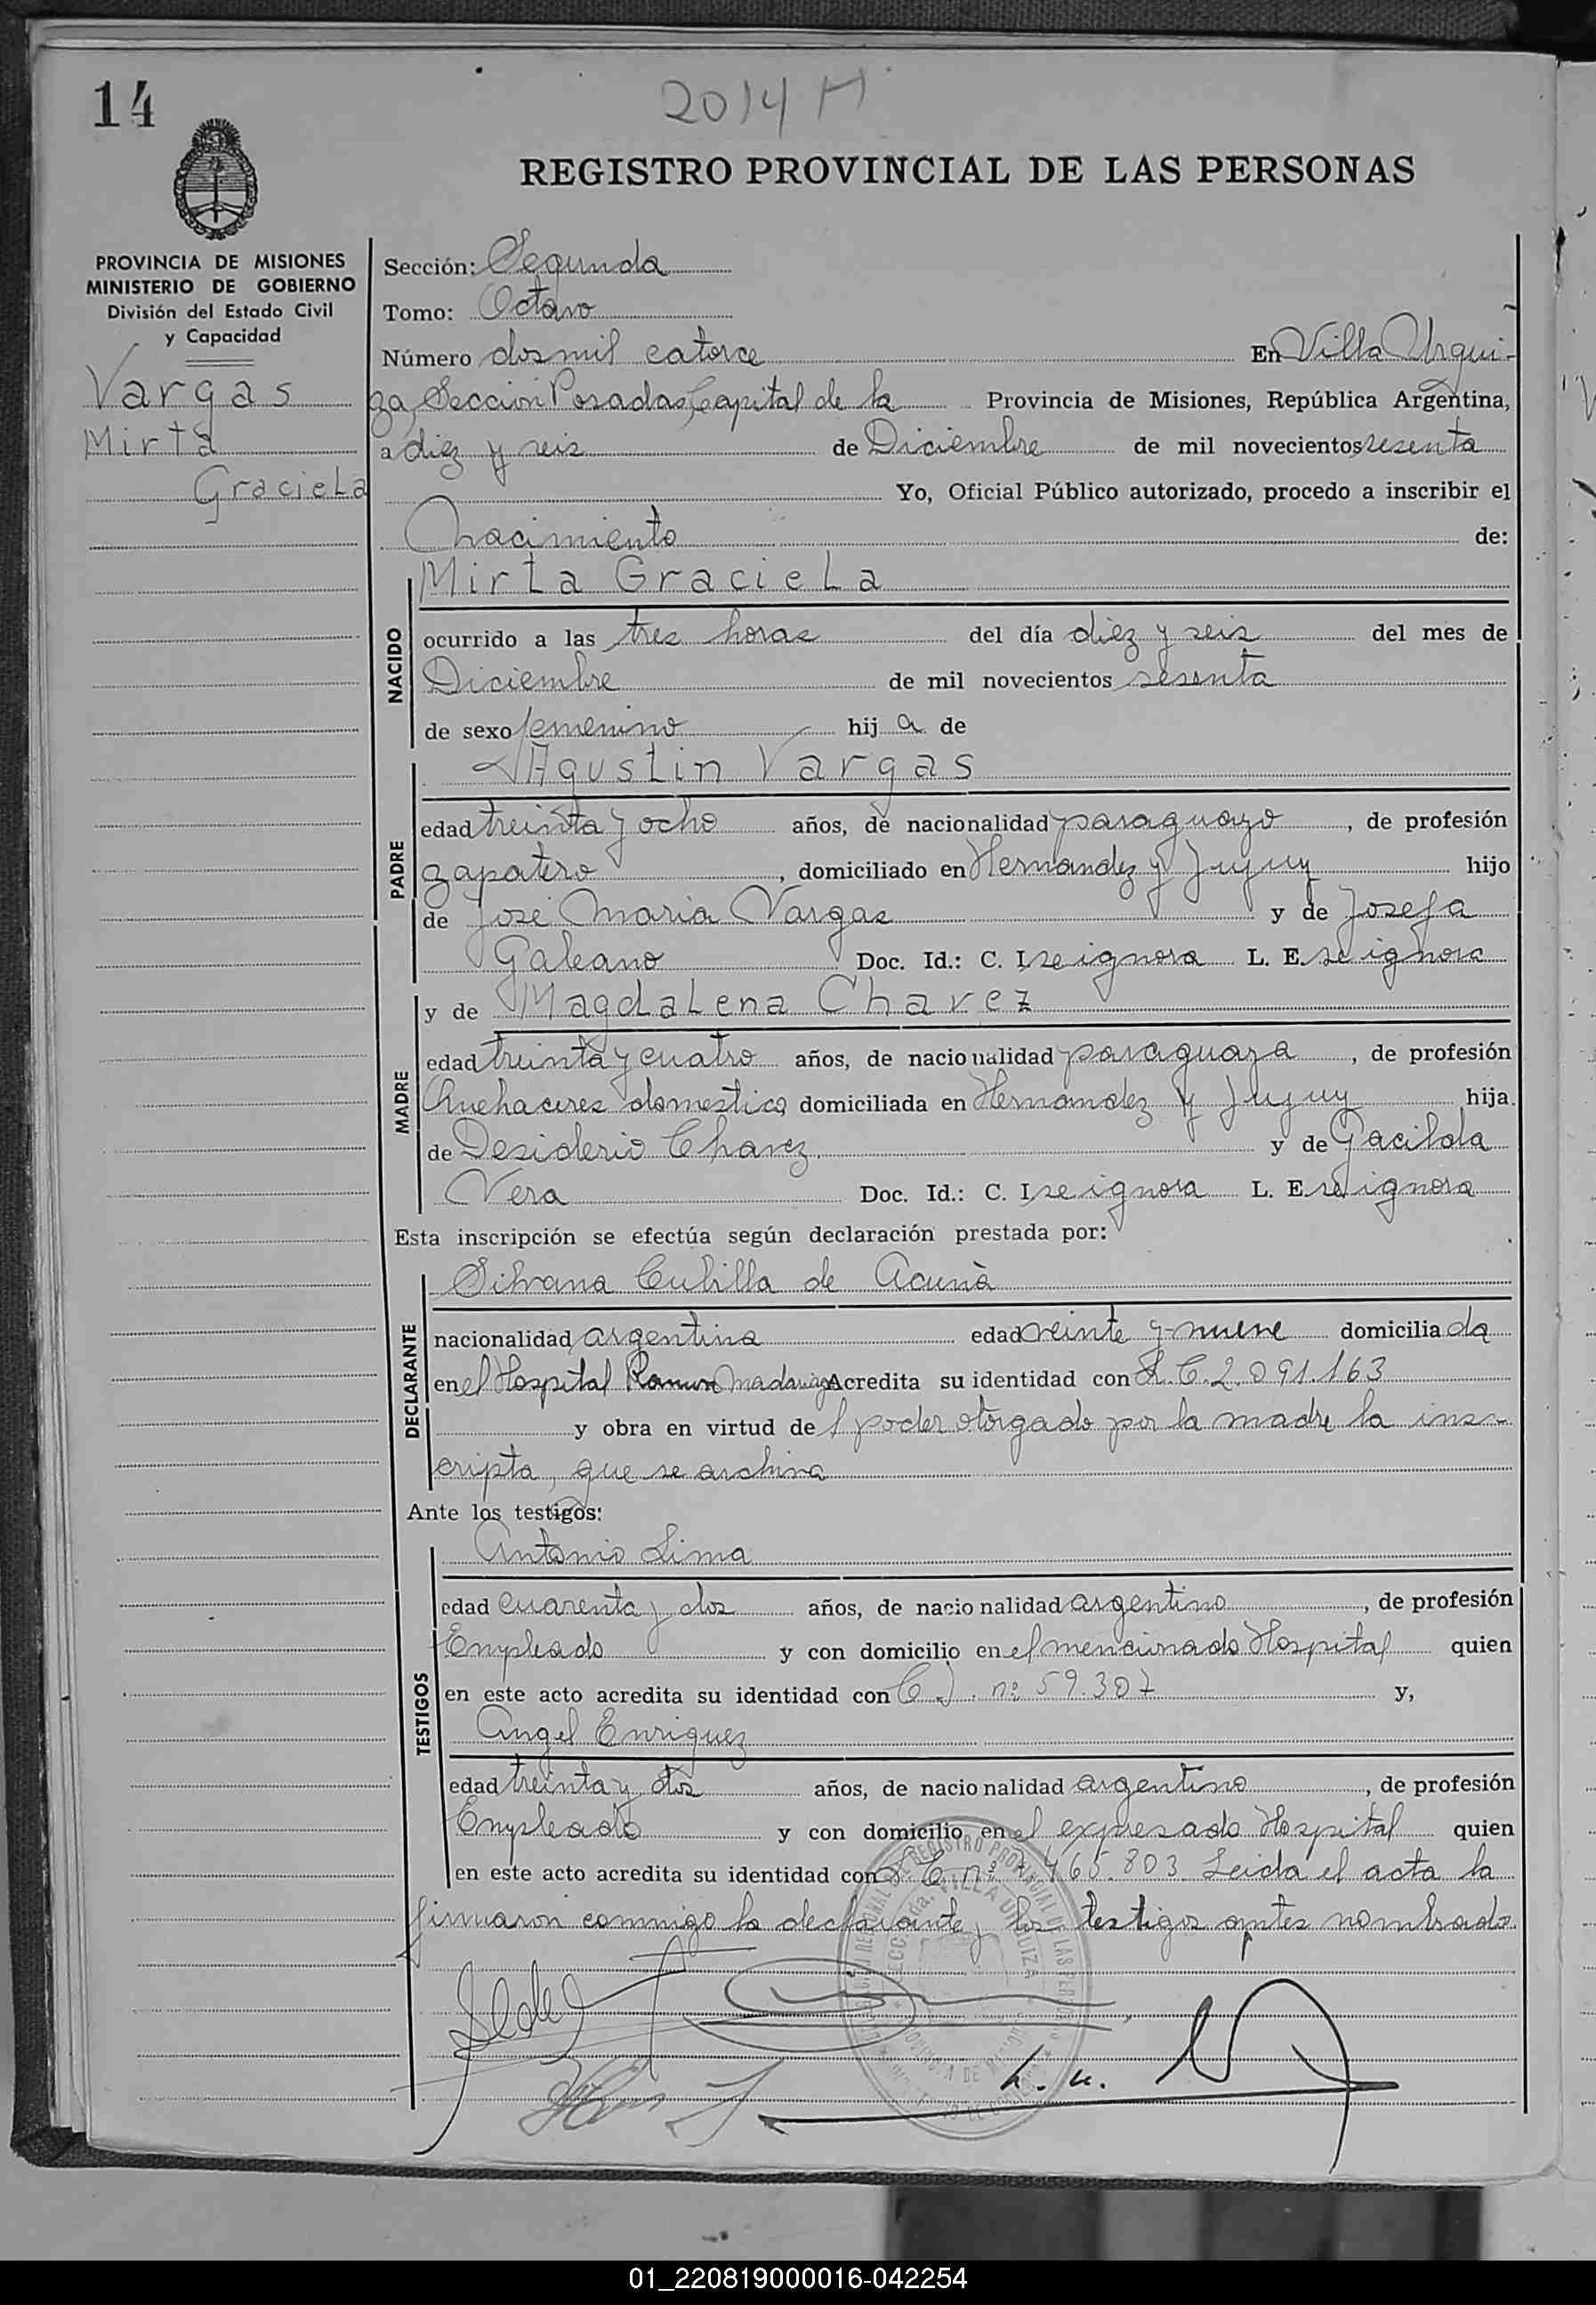 14
2014 M
REGISTRO PROVINCIAL DE LAS PERSONAS
PROVINCIA DE MISIONES
MINISTERIO DE GOBIERNO
División del Estado Civil
y Capacidad
Vargas
Mirta
Graciela
Sección: Segunda
Tomo: Octavo
Número dos mil catorce En Villa Urqui-
za, Sección Posadas, Capital de la Provincia de Misiones, República Argentina,
a diez y seis de Diciembre de mil novecientos sesenta
Yo, Oficial Público autorizado, procedo a inscribir el
Nacimiento de:
Mirta Graciela
NACIDO
ocurrido a las tres horas del día diez y seis del mes de
Diciembre de mil novecientos sesenta
de sexo femenino hija de
Agustin Vargas
PADRE
edad treinta y ocho años, de nacionalidad paraguayo, de profesión
zapatero, domiciliado en Hernandez y Jujuy hijo
de José Maria Vargas y de Josefa
Galeano Doc. Id.: C. I. se ignora L. E. se ignora
y de Magdalena Chavez
MADRE
edad treinta y cuatro años, de nacionalidad paraguaya, de profesión
Quehaceres domestico, domiciliada en Hernandez y Jujuy hija
de Desiderio Chavez y de Gacilda
Vera Doc. Id.: C. I. se ignora L. E. se ignora
Esta inscripción se efectúa según declaración prestada por:
Silvana Cubilla de Acuña
DECLARANTE
nacionalidad argentina edad veinte y nueve domiciliada
en el Hospital Ramon Madariaga Acredita su identidad con L. C. 2.091.163
y obra en virtud del poder otorgado por la madre la ins-
cripta, que se archiva
Ante los testigos:
Antonio Lima
TESTIGOS
edad cuarenta y dos años, de nacionalidad argentino, de profesión
Empleado y con domicilio en el mencionado Hospital quien
en este acto acredita su identidad con C. I. nº 59.307 y,
Angel Enriquez
edad treinta y dos años, de nacionalidad argentino, de profesión
Empleado y con domicilio en el expresado Hospital quien
en este acto acredita su identidad con nº 465.803. Leida el acta la
firmaron conmigo la declarante y los testigos antes nombrado
01_220819000016-042254